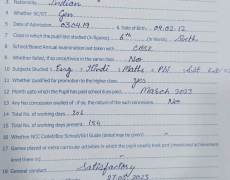 Nationality Indian
4 Whether SC/ST Gen
5 Date of Admission 03.04.19 6 Date of Birth 09.02.12
7 Class in which the pupil last studied (in figures) 6th (in Words) Sixth
8 School/Board Annual examination last taken with CBSE
9 Whether failed, if so once/twice in the same class No
10 Subjects Studied 1. Eng 2. Hindi 3. Maths
11 Whether qualified for promotion to the higher class Yes
12 Month upto which the Pupil has paid school dues paid March 2023
13 Any fee concession availed of : if so, the nature of the such concession No
14 Total No. of working days
15 Total No. of working days present
16 Whether NCC Cadet/Boy Scout/Girl Guide (detail may be given)
17 Games played or extra curricular activities in which the pupil usually took part (mentioned achievement
level there in)
18 General conduct Satisfactory
2023